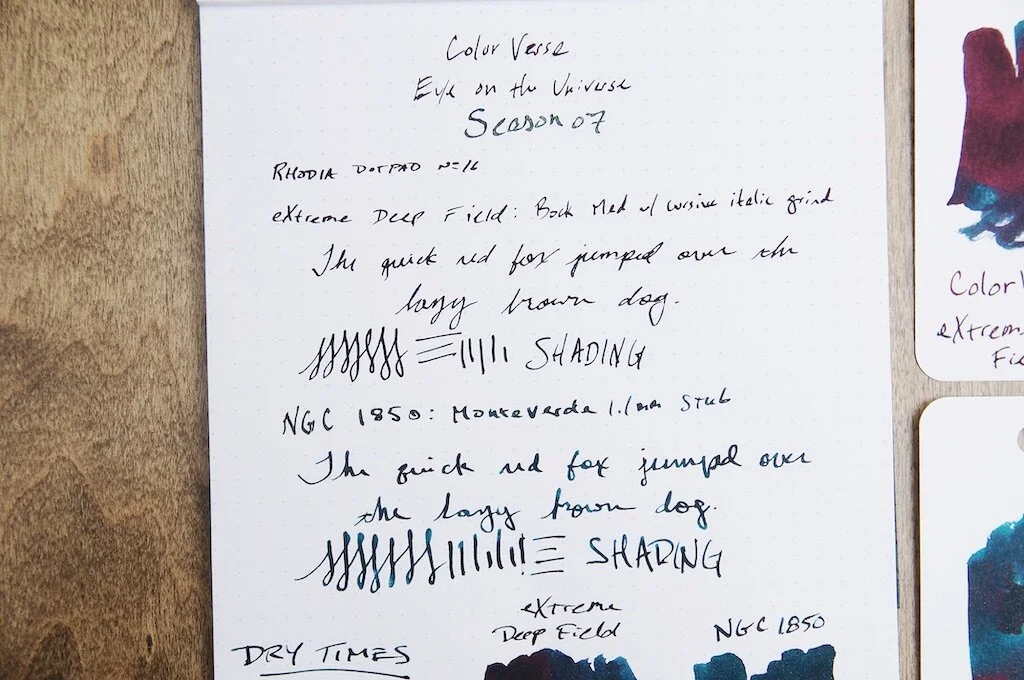 Color Verse
Eye on the Universe
Season 07
RHODIA DOTPAD Nº16
eXtreme Deep Field: Bock Med w/ cursive italic grind
The quick red fox jumped over the
lazy brown dog.
SHADING
NGC 1850: Monteverde 1.1mm Stub
The quick red fox jumped over
the lazy brown dog.
SHADING
eXtreme
Deep Field
NGC 1850
DRY TIMES
Color
eXtrem
Fie